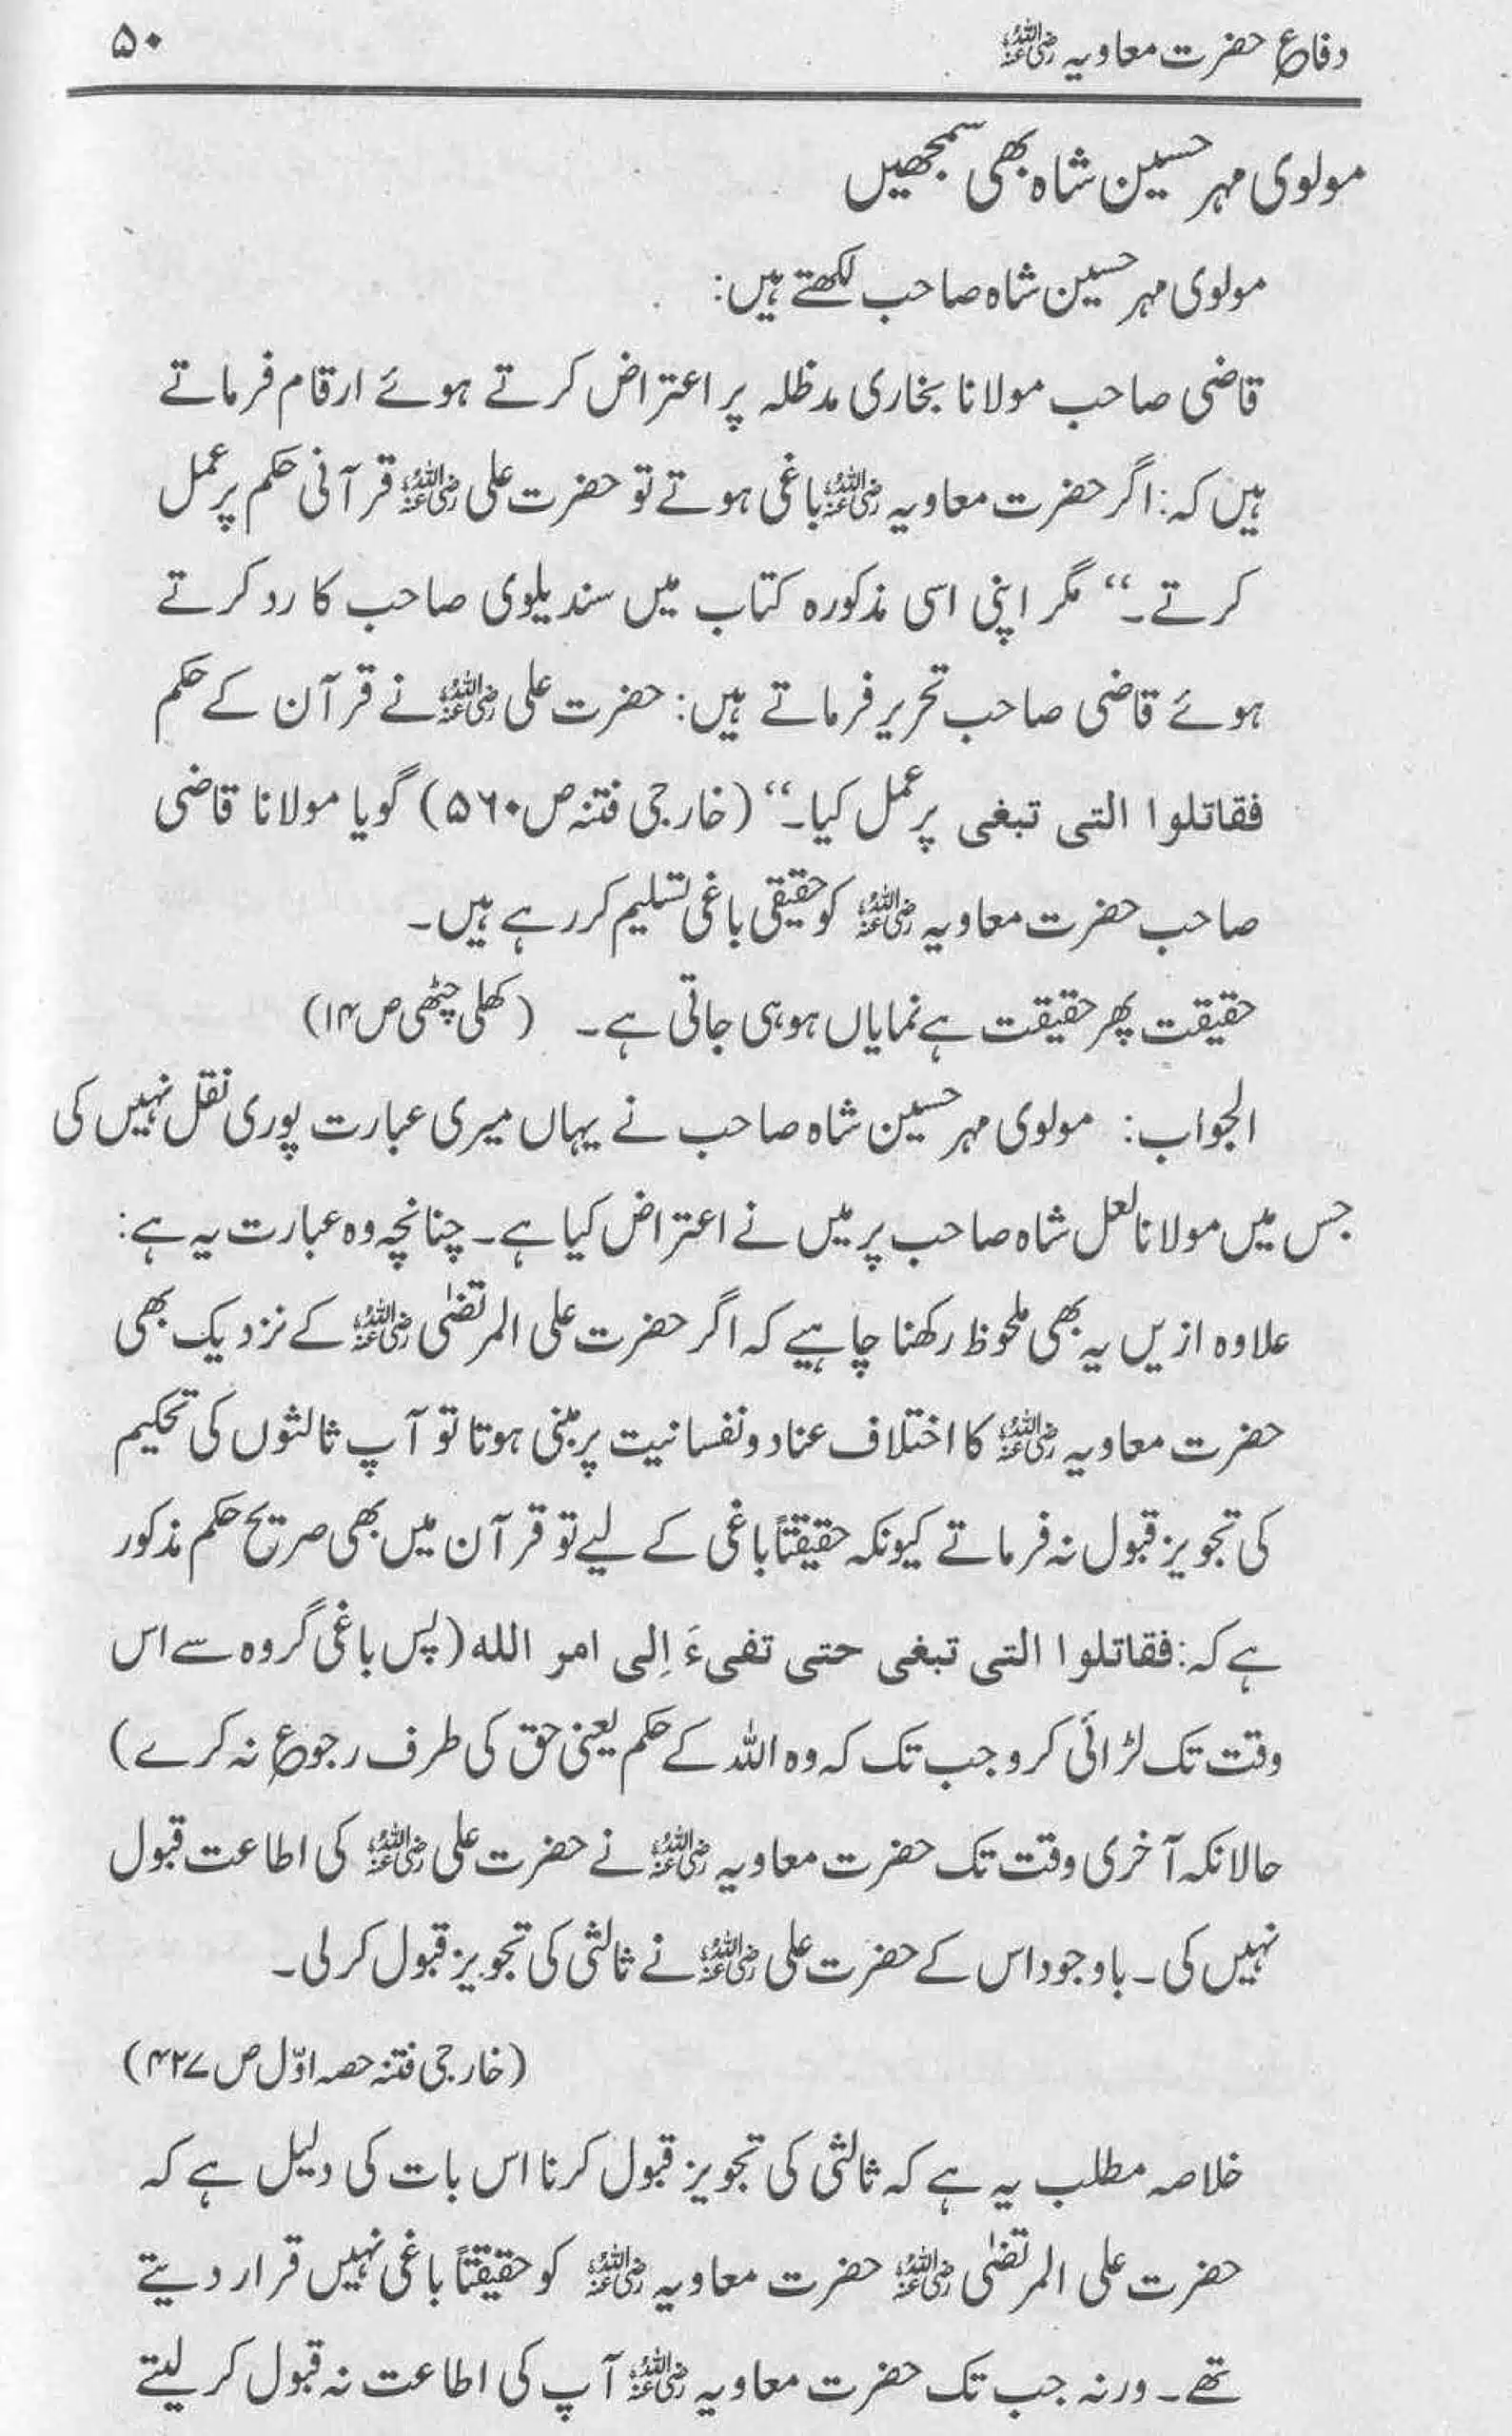 دفاعِ حضرت معاویہ رضی اللہ عنہ ۵۰
مولوی مہر حسین شاہ بھی سمجھیں
مولوی مہر حسین شاہ صاحب لکھتے ہیں:
قاضی صاحب مولانا بخاری مدظلہ پر اعتراض کرتے ہوئے ارقام فرماتے
ہیں کہ: اگر حضرت معاویہ رضی اللہ عنہ باغی ہوتے تو حضرت علی رضی اللہ عنہ قرآنی حکم پر عمل
کرتے۔“ مگر اپنی اسی مذکورہ کتاب میں سندیلوی صاحب کا رد کرتے
ہوئے قاضی صاحب تحریر فرماتے ہیں: حضرت علی رضی اللہ عنہ نے قرآن کے حکم
فقاتلوا التی تبغی پر عمل کیا۔“ (خارجی فتنہ ص ۵۶۰) گویا مولانا قاضی
صاحب حضرت معاویہ رضی اللہ عنہ کو حقیقی باغی تسلیم کر رہے ہیں۔
حقیقت پھر حقیقت ہے نمایاں ہو ہی جاتی ہے۔ (کھلی چٹھی ص ۱۴)
الجواب: مولوی مہر حسین شاہ صاحب نے یہاں میری عبارت پوری نقل نہیں کی
جس میں مولانا لعل شاہ صاحب پر میں نے اعتراض کیا ہے۔ چنانچہ وہ عبارت یہ ہے:
علاوہ ازیں یہ بھی ملحوظ رکھنا چاہیے کہ اگر حضرت علی المرتضیٰ رضی اللہ عنہ کے نزدیک بھی
حضرت معاویہ رضی اللہ عنہ کا اختلاف عناد و نفسانیت پر مبنی ہوتا تو آپ ثالثوں کی تحکیم
کی تجویز قبول نہ فرماتے کیونکہ حقیقتاً باغی کے لیے تو قرآن میں بھی صریح حکم مذکور
ہے کہ: فقاتلوا التی تبغی حتی تفیءَ اِلی امر اللہ (پس باغی گروہ سے اس
وقت تک لڑائی کرو جب تک کہ وہ اللہ کے حکم یعنی حق کی طرف رجوع نہ کرے)
حالانکہ آخری وقت تک حضرت معاویہ رضی اللہ عنہ نے حضرت علی رضی اللہ عنہ کی اطاعت قبول
نہیں کی۔ باوجود اس کے حضرت علی رضی اللہ عنہ نے ثالثی کی تجویز قبول کر لی۔
(خارجی فتنہ حصہ اوّل ص ۴۲۷)
خلاصہ مطلب یہ ہے کہ ثالثی کی تجویز قبول کرنا اس بات کی دلیل ہے کہ
حضرت علی المرتضیٰ رضی اللہ عنہ حضرت معاویہ رضی اللہ عنہ کو حقیقتاً باغی نہیں قرار دیتے
تھے۔ ورنہ جب تک حضرت معاویہ رضی اللہ عنہ آپ کی اطاعت نہ قبول کر لیتے